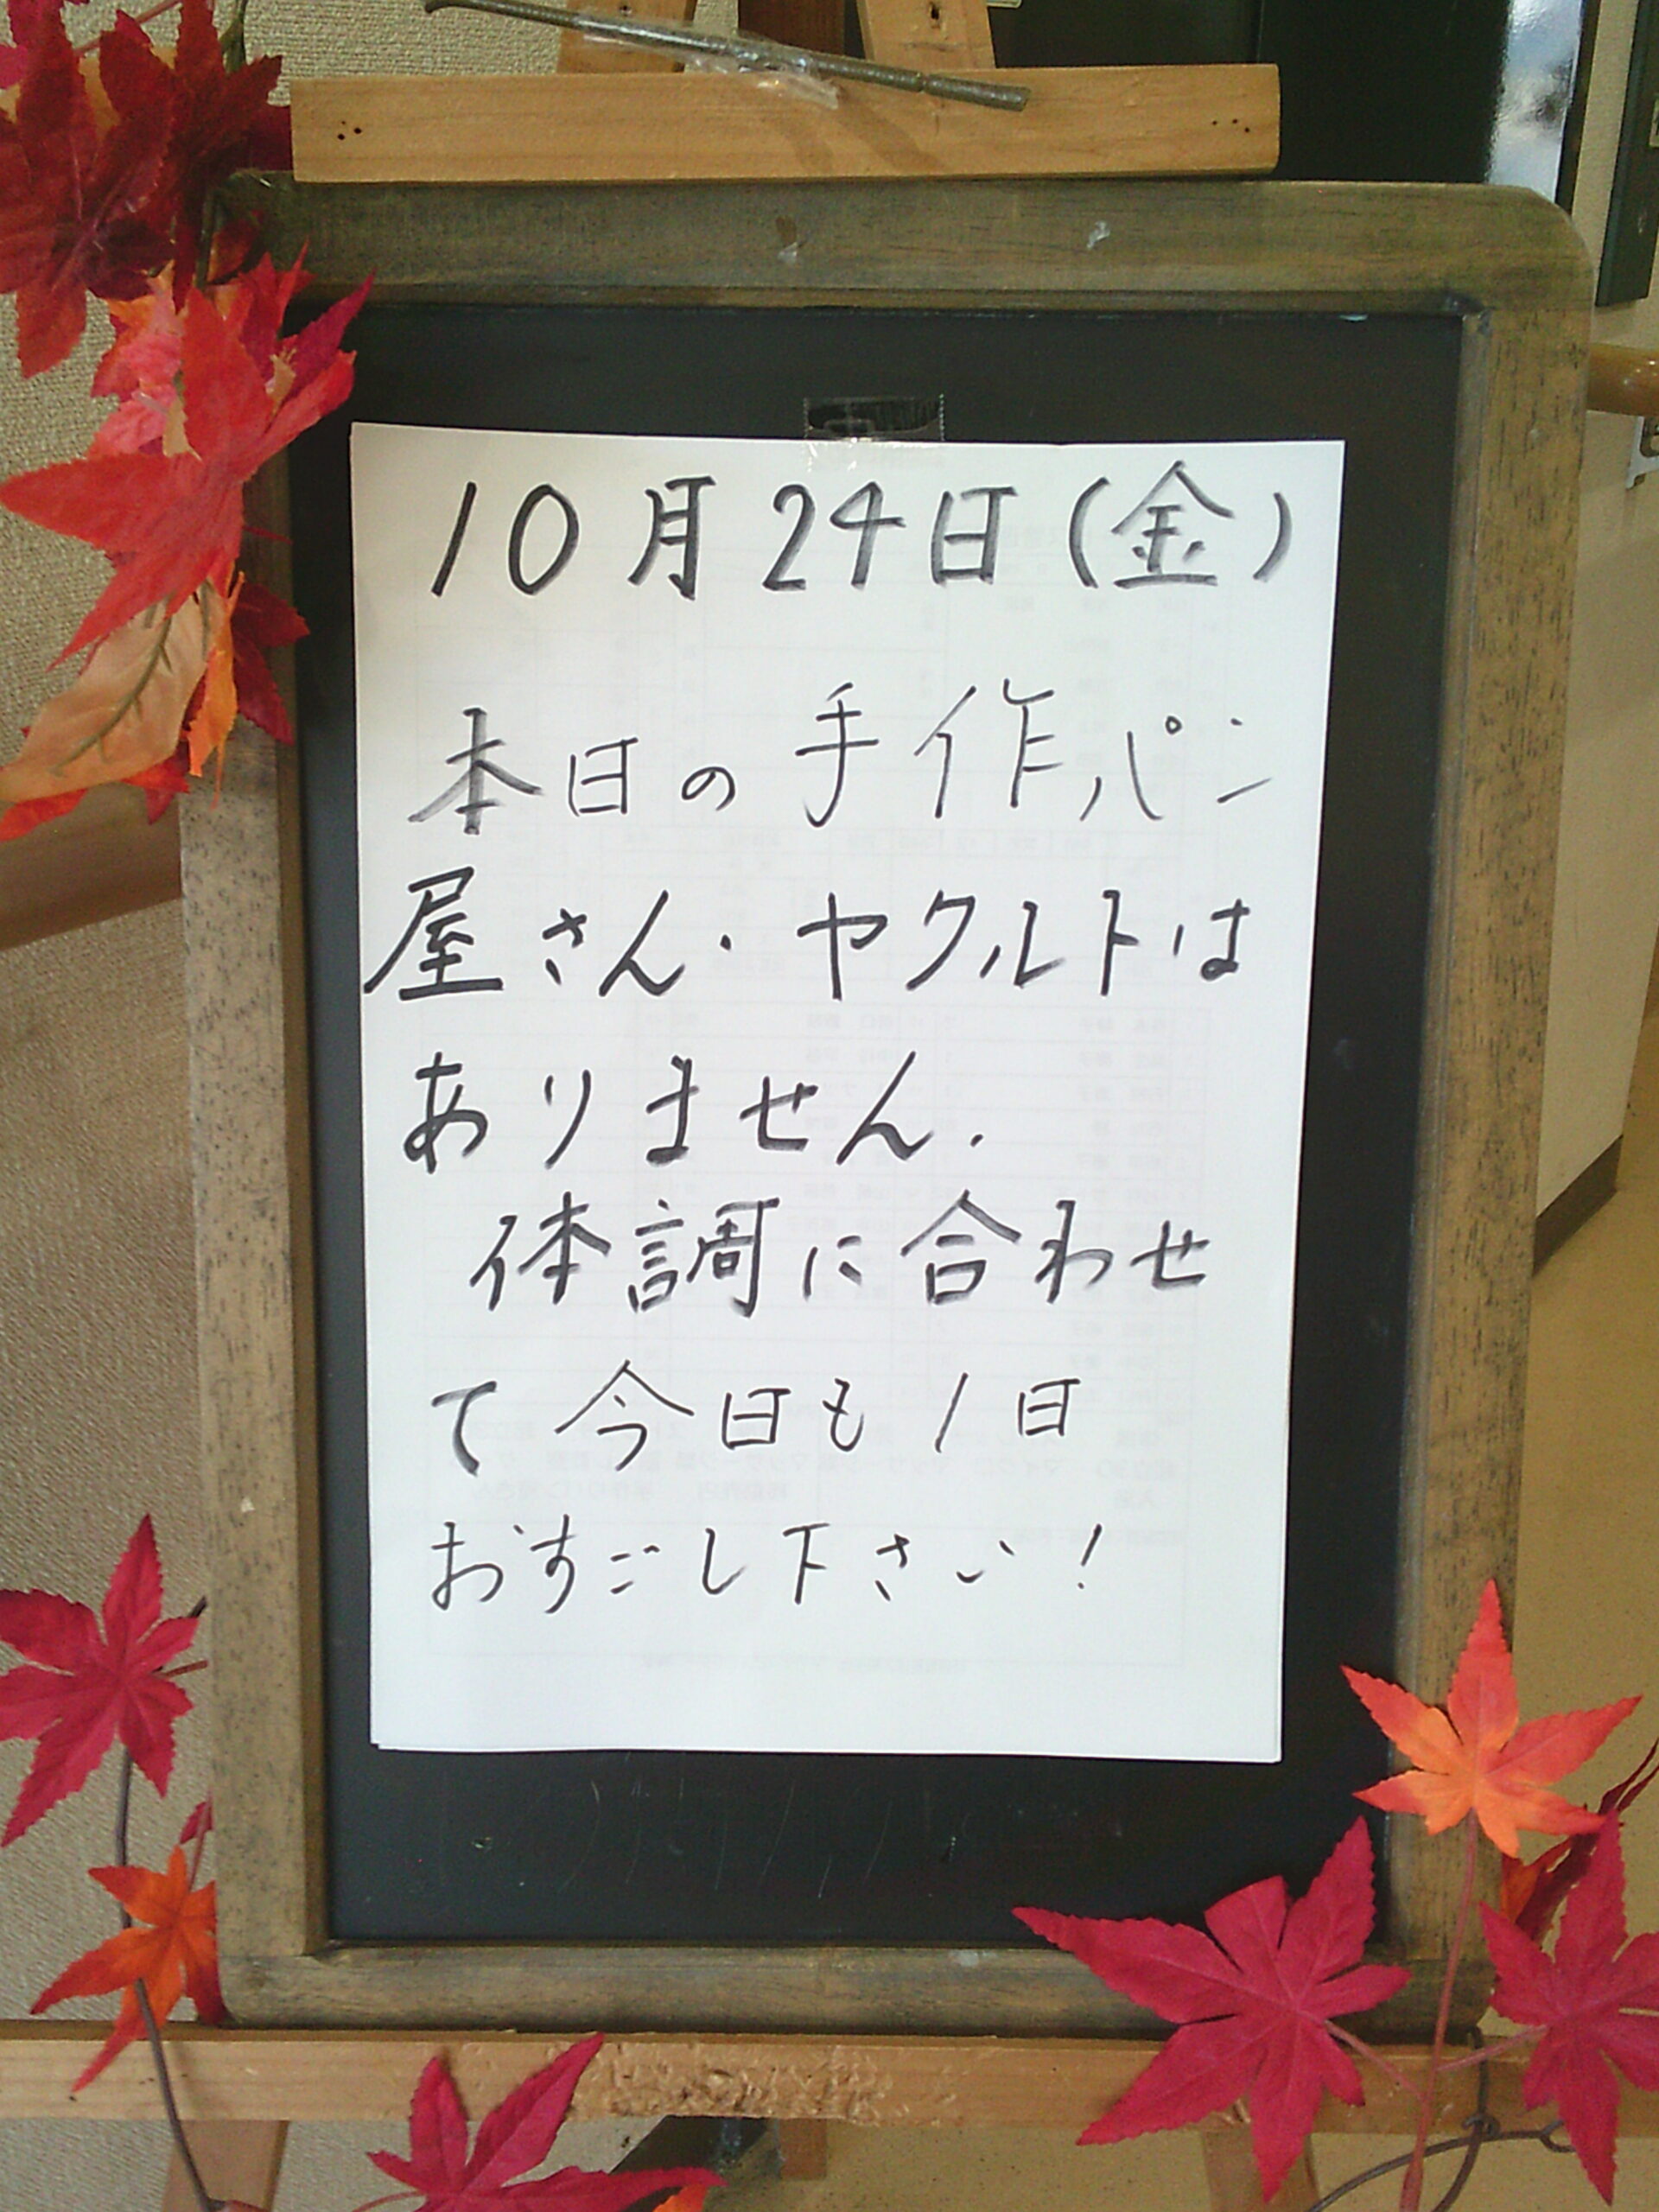 10月24日(金)
本日の手作パン
屋さん・ヤクルトは
ありません.
体調に合わせ
て今日も1日
おすごし下さい!